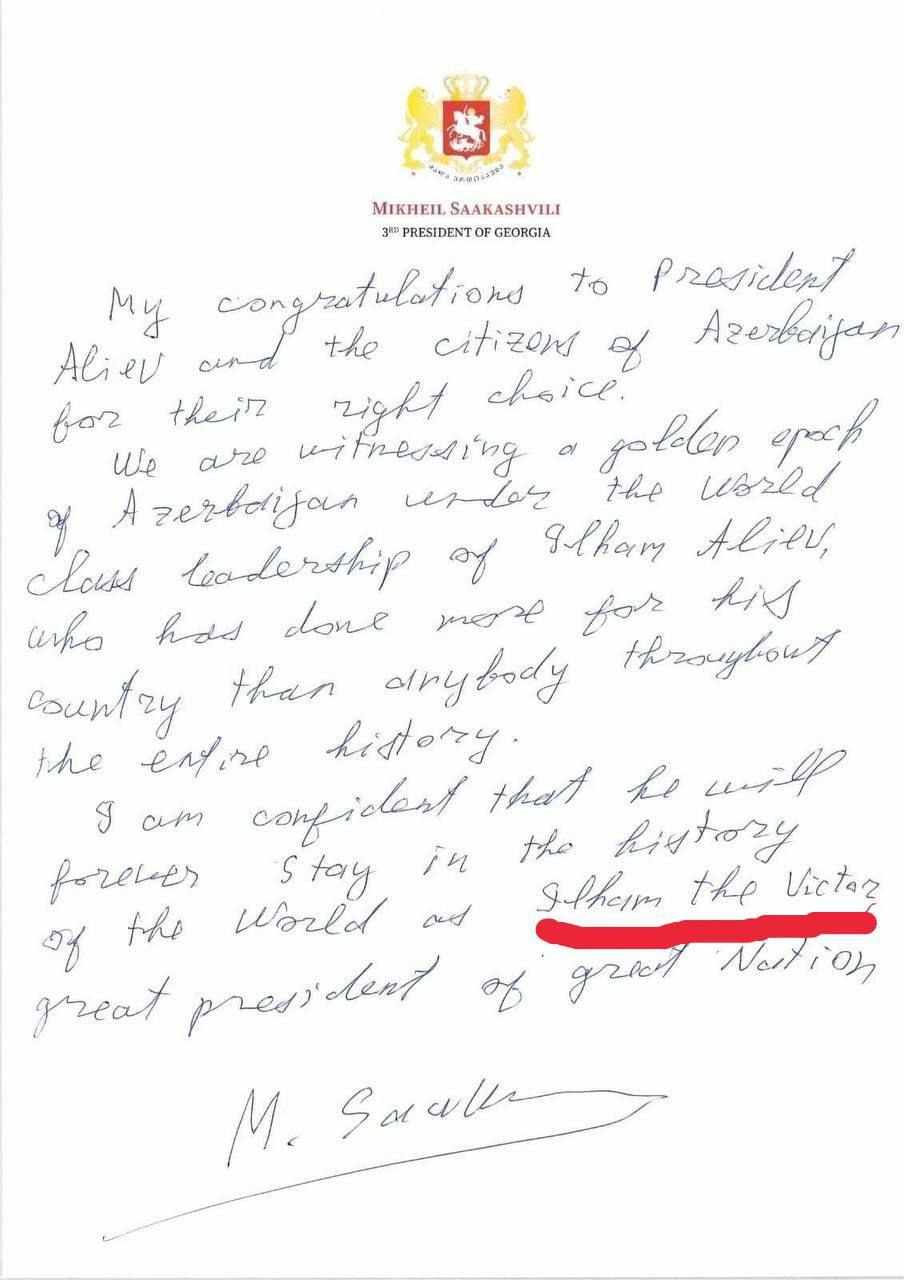 MIKHEIL SAAKASHVILI
3RD PRESIDENT OF GEORGIA
My congratulations to President
Aliev and the citizens of Azerbaijan
for their right choice.
We are witnessing a golden epoch
of Azerbaijan under the world
class leadership of Ilham Aliev,
who has done more for his
country than anybody throughout
the entire history.
I am confident that he will
forever stay in the history
of the World as Ilham the Victor
great president of great Nation
M. Saak